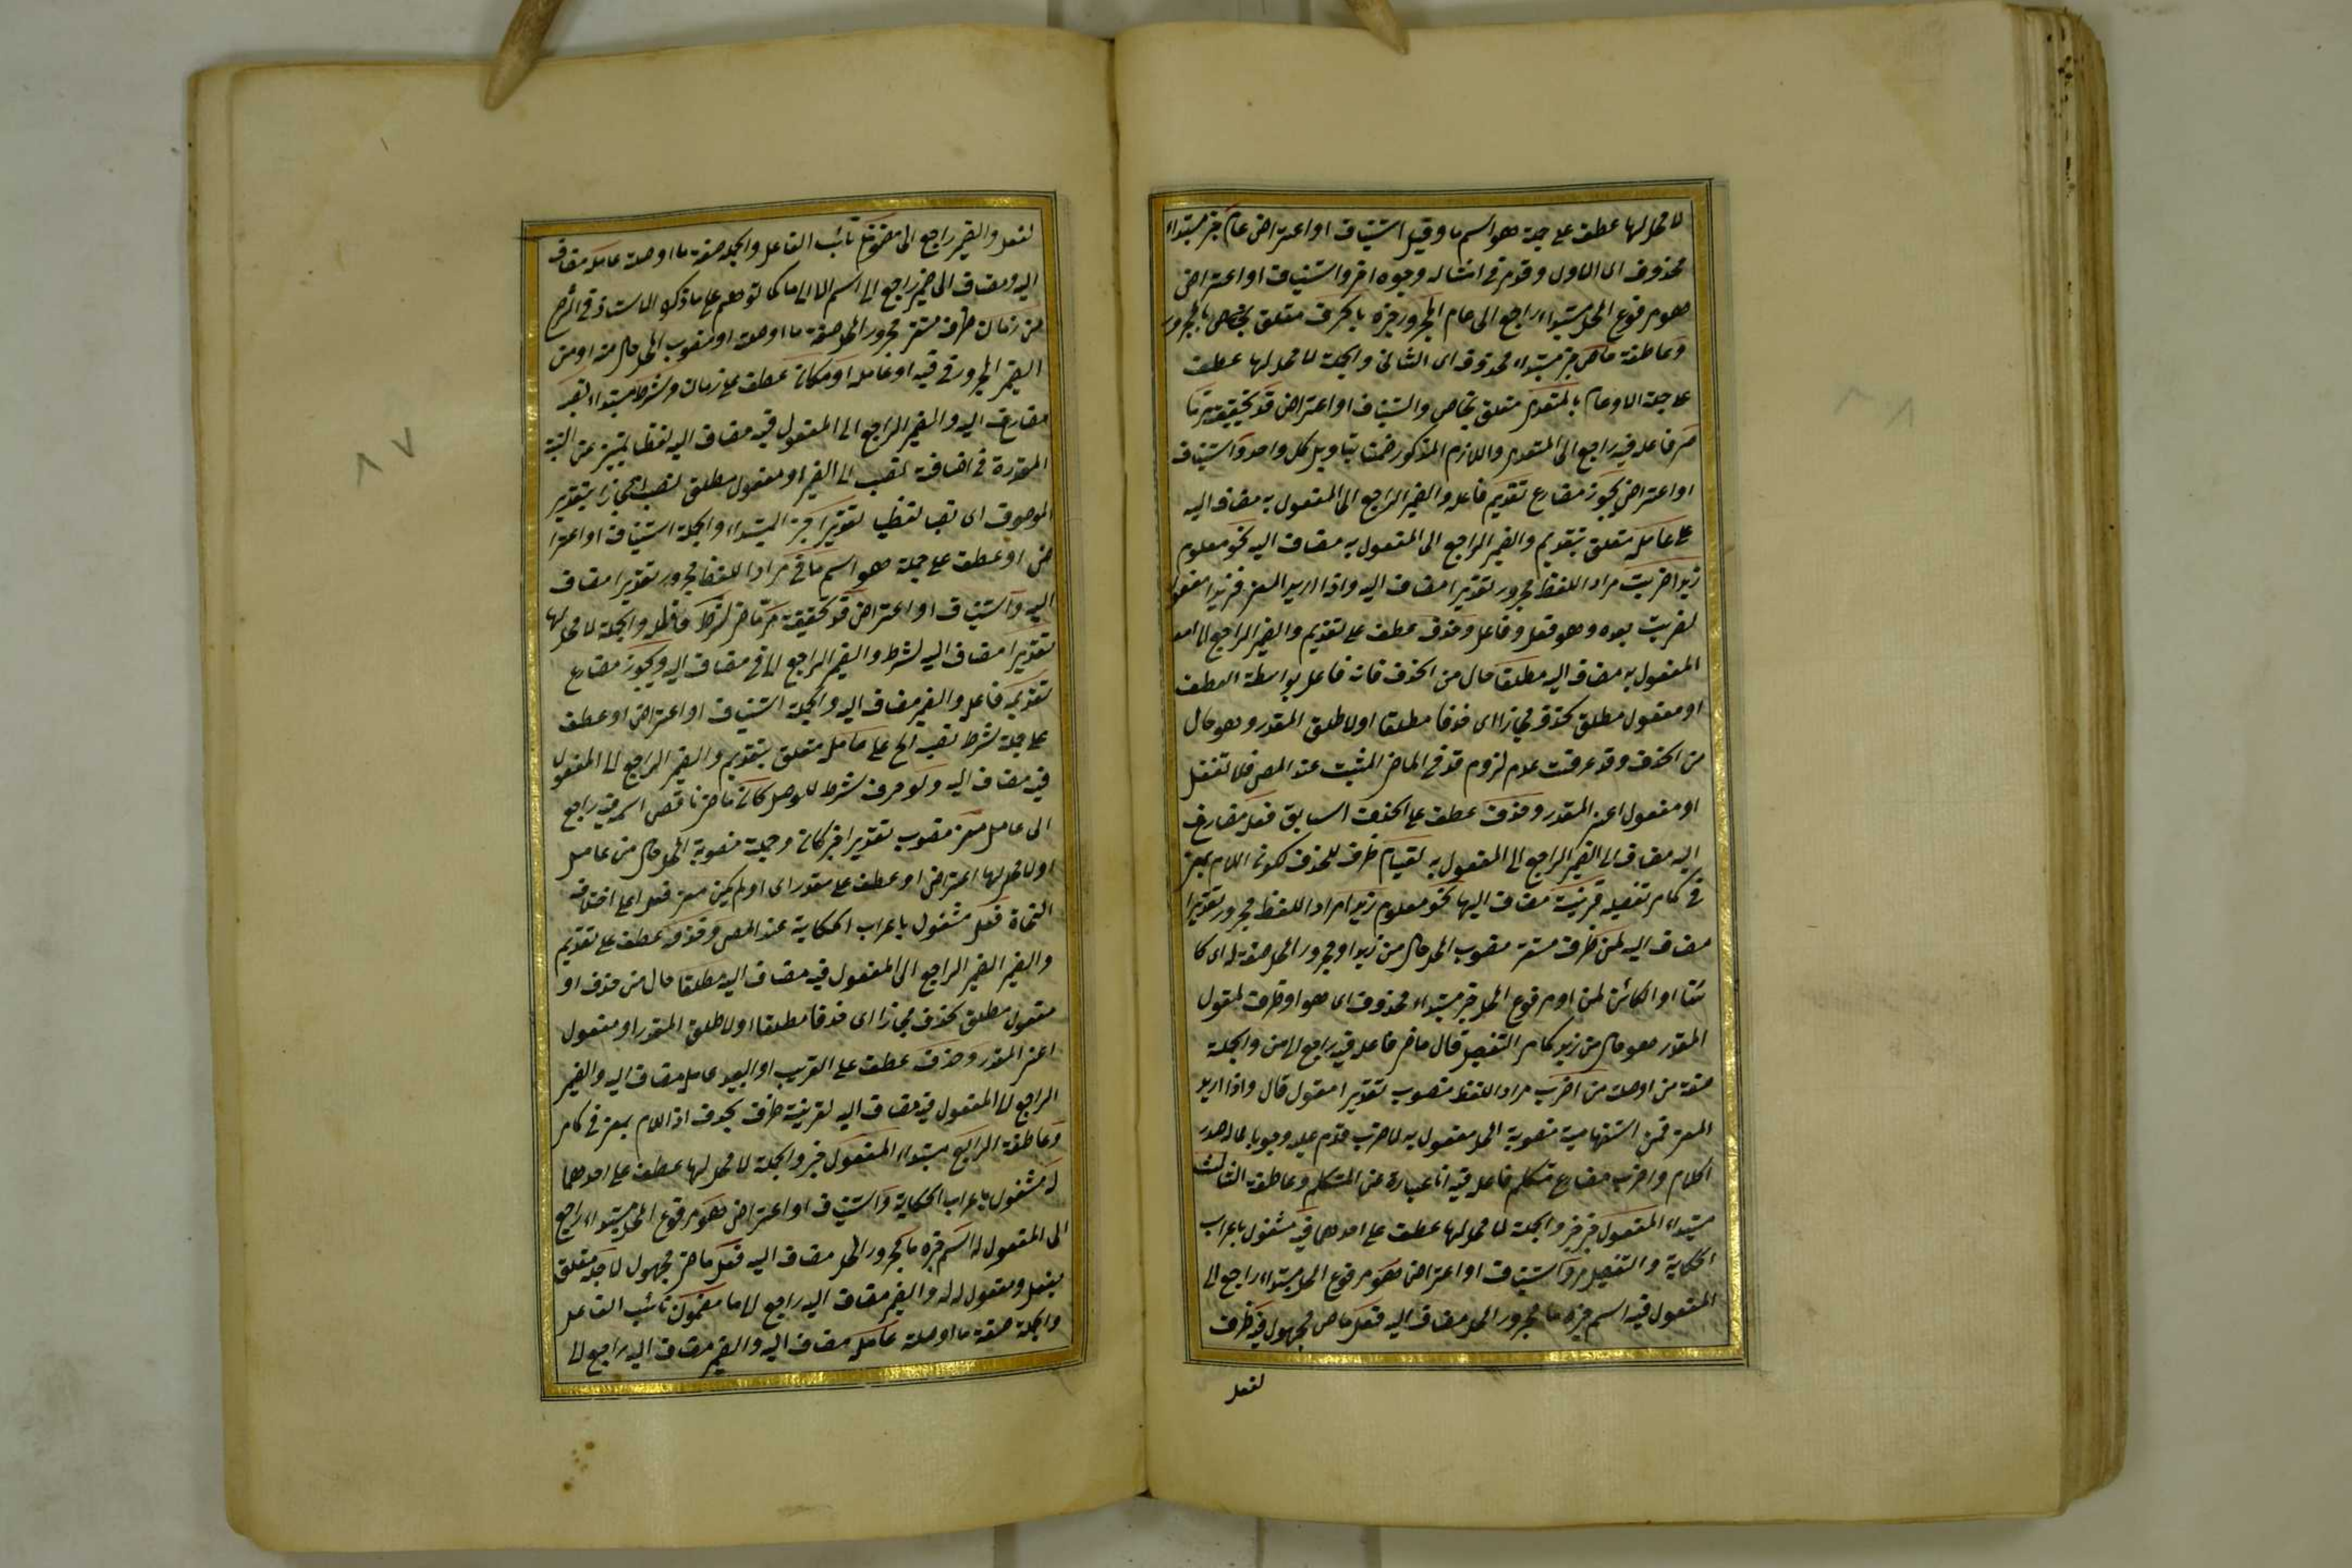 لا محل لها عطف على جملة هو اسم ما وقيل استيناف او اعتراض عام خبر مبتداء
محذوف اى الاول وقد مر فى امثاله وجوه اخر واستيناف او اعتراض
هو مرفوع المحل مبتداء راجع الى عام الجرور جزه بالحرف متعلق بخاص بالمجرور
وعاطفة خاص خبر مبتداء محذوف اى الثانى والجملة لا محل لها عطف
على جملة الاول عام بالمتعدى متعلق بخاص واستيناف او اعتراض قد تحقيقية
مر فاعله فيه راجع الى المتعدى واللازم المذكور ضمنا بتاويل كل واحد واستيناف
او اعتراض يجوز مضارع تقديم فاعله والضمير الراجع الى المفعول به مضاف اليه
على عامله متعلق بتقديم والضمير الراجع الى المفعول به مضاف اليه نحو معلوم
زيدا ضربت مراد اللفظ مجرور تقديرا مضاف اليه واذا اريد المعنى فزيدا مفعول
لضربت بعده وهو فعل وفاعل وحذف عطف على تقديم والضمير الراجع الى
المفعول به مضاف اليه مطلقا حال من الحذف فانه فاعل بواسطة العطف
او مفعول مطلق لحذف مجازا اى حذفا مطلقا او لاطلق المقدر وهو حال
من الحذف وقد عرفت عدم لزوم قد فى الماضى المثبت عند المص فلا تغفل
او مفعول اعنى المقدر وحذف عطف على الحذف السابق فعله مضارع
اليه مضاف الى الضمير الراجع الى المفعول به لقيام ظرف للحذف لكون اللام بمعنى
فى كما مر تفصيله قرينة مضاف اليها نحو معلوم زيدا مراد اللفظ مجرور تقديرا
مضاف اليه لمن ظرف مستقر منصوب المحل حال من زيدا او مجرور المحل صفة له اى كا
ئنا او الكائن لمن او مرفوع المحل خبر مبتداء محذوف اى هو او ظرف لمقول
المقدر هو حال من زيد كما مر التفصيل قال ماض فاعله فيه راجع الى من والجملة
صفة من او صلة من اضرب مراد اللفظ منصوب تقديرا مقول قال واذا اريد
المعنى فمن استفهامية منصوبة المحل مفعول به لاضرب قدم عليه وجوبا لماله صدر
الكلام واضرب مضارع متكلم فاعله فيه انا عبارة عن المتكلم وعاطفة الثالث
مبتداء المفعول فيه خبر والجملة لا محل لها عطف على احدهما فيه مشغول باعراب
الحكاية والتفصيل مر واستيناف او اعتراض هو مرفوع المحل مبتداء راجع الى
المفعول فيه اسم خبره ما مجرور المحل مضاف اليه فعل ماض مجهول فيه ظرف
لفعل
لفعل والضمير راجع الى ما مضمون نائب الفاعل والجملة صفة ما او صلة عامله مضاف
اليه ومضاف الى ضمير راجع الى اسم لا الى ما كما توهم على ما ذكره الاستاذ فى الشرح
من زمان ظرف مستقر مجرور المحل صفة ما او صلة او منصوب المحل حال منه او من
الضمير المجرور فى فيه او عامله او مكان عطف على زمان وشرط مبتداء نصب
مضارع اليه والضمير الراجع الى المفعول فيه مضاف اليه لفظا تمييز عن النسبة
المقدرة فى اضافة نصب الى الضمير او مفعول مطلق لنصب مجازا بتقدير
الموصوف اى نصبا لفظيا تقديرا خبر المبتداء والجملة استيناف او اعترا
ض او عطف على جملة هو اسم ما فى مراد اللفظ مجرور تقديرا مضاف
اليه واستيناف او اعتراض قد تحقيقية مر ماض لشرط فاعله والجملة لا محل لها
تقديرا مضاف اليه لشرط والضمير الراجع الى فى مضاف اليه ويجوز مضارع
تقديمه فاعل والضمير مضاف اليه والجملة استيناف او اعتراض او عطف
على جملة شرط نصب الخ على عامله متعلق بتقديم والضمير الراجع الى المفعول
فيه مضاف اليه ولو حرف شرط للوصل كان ماض ناقص اسمه فيه راجع
الى عامل معنى منصوب تقديرا خبر كان وجملة منصوبة المحل حال من عامل
او لا محل لها اعتراض او عطف على مقدر اى او لم يكن معنى فعل على اختلاف
النحاة فعل مشغول باعراب الحكاية عند المص وحذفه عطف على تقديم
والضمير الضمير الراجع الى المفعول فيه مضاف اليه مطلقا حال من حذف او
مفعول مطلق لحذف مجازا اى حذفا مطلقا او لاطلق المقدر او مفعول
اعنى المقدر وحذف عطف على القريب او البعيد عامل مضاف اليه والضمير
الراجع الى المفعول فيه مضاف اليه لقرينة ظرف لحذف اذ اللام بمعنى فى كما مر
وعاطفة الرابع مبتداء المفعول خبر والجملة لا محل لها عطف على احدهما
له مشغول باعراب الحكاية واستيناف او اعتراض هو مرفوع المحل مبتداء راجع
الى المفعول له اسم خبره ما مجرور المحل مضاف اليه فعل ماض مجهول لاجله متعلق
بفعل ومفعول له له والضمير مضاف اليه راجع الى ما مضمون نائب الفاعل
والجملة صفة ما او صلة عامله مضاف اليه والضمير مضاف اليه راجع الى